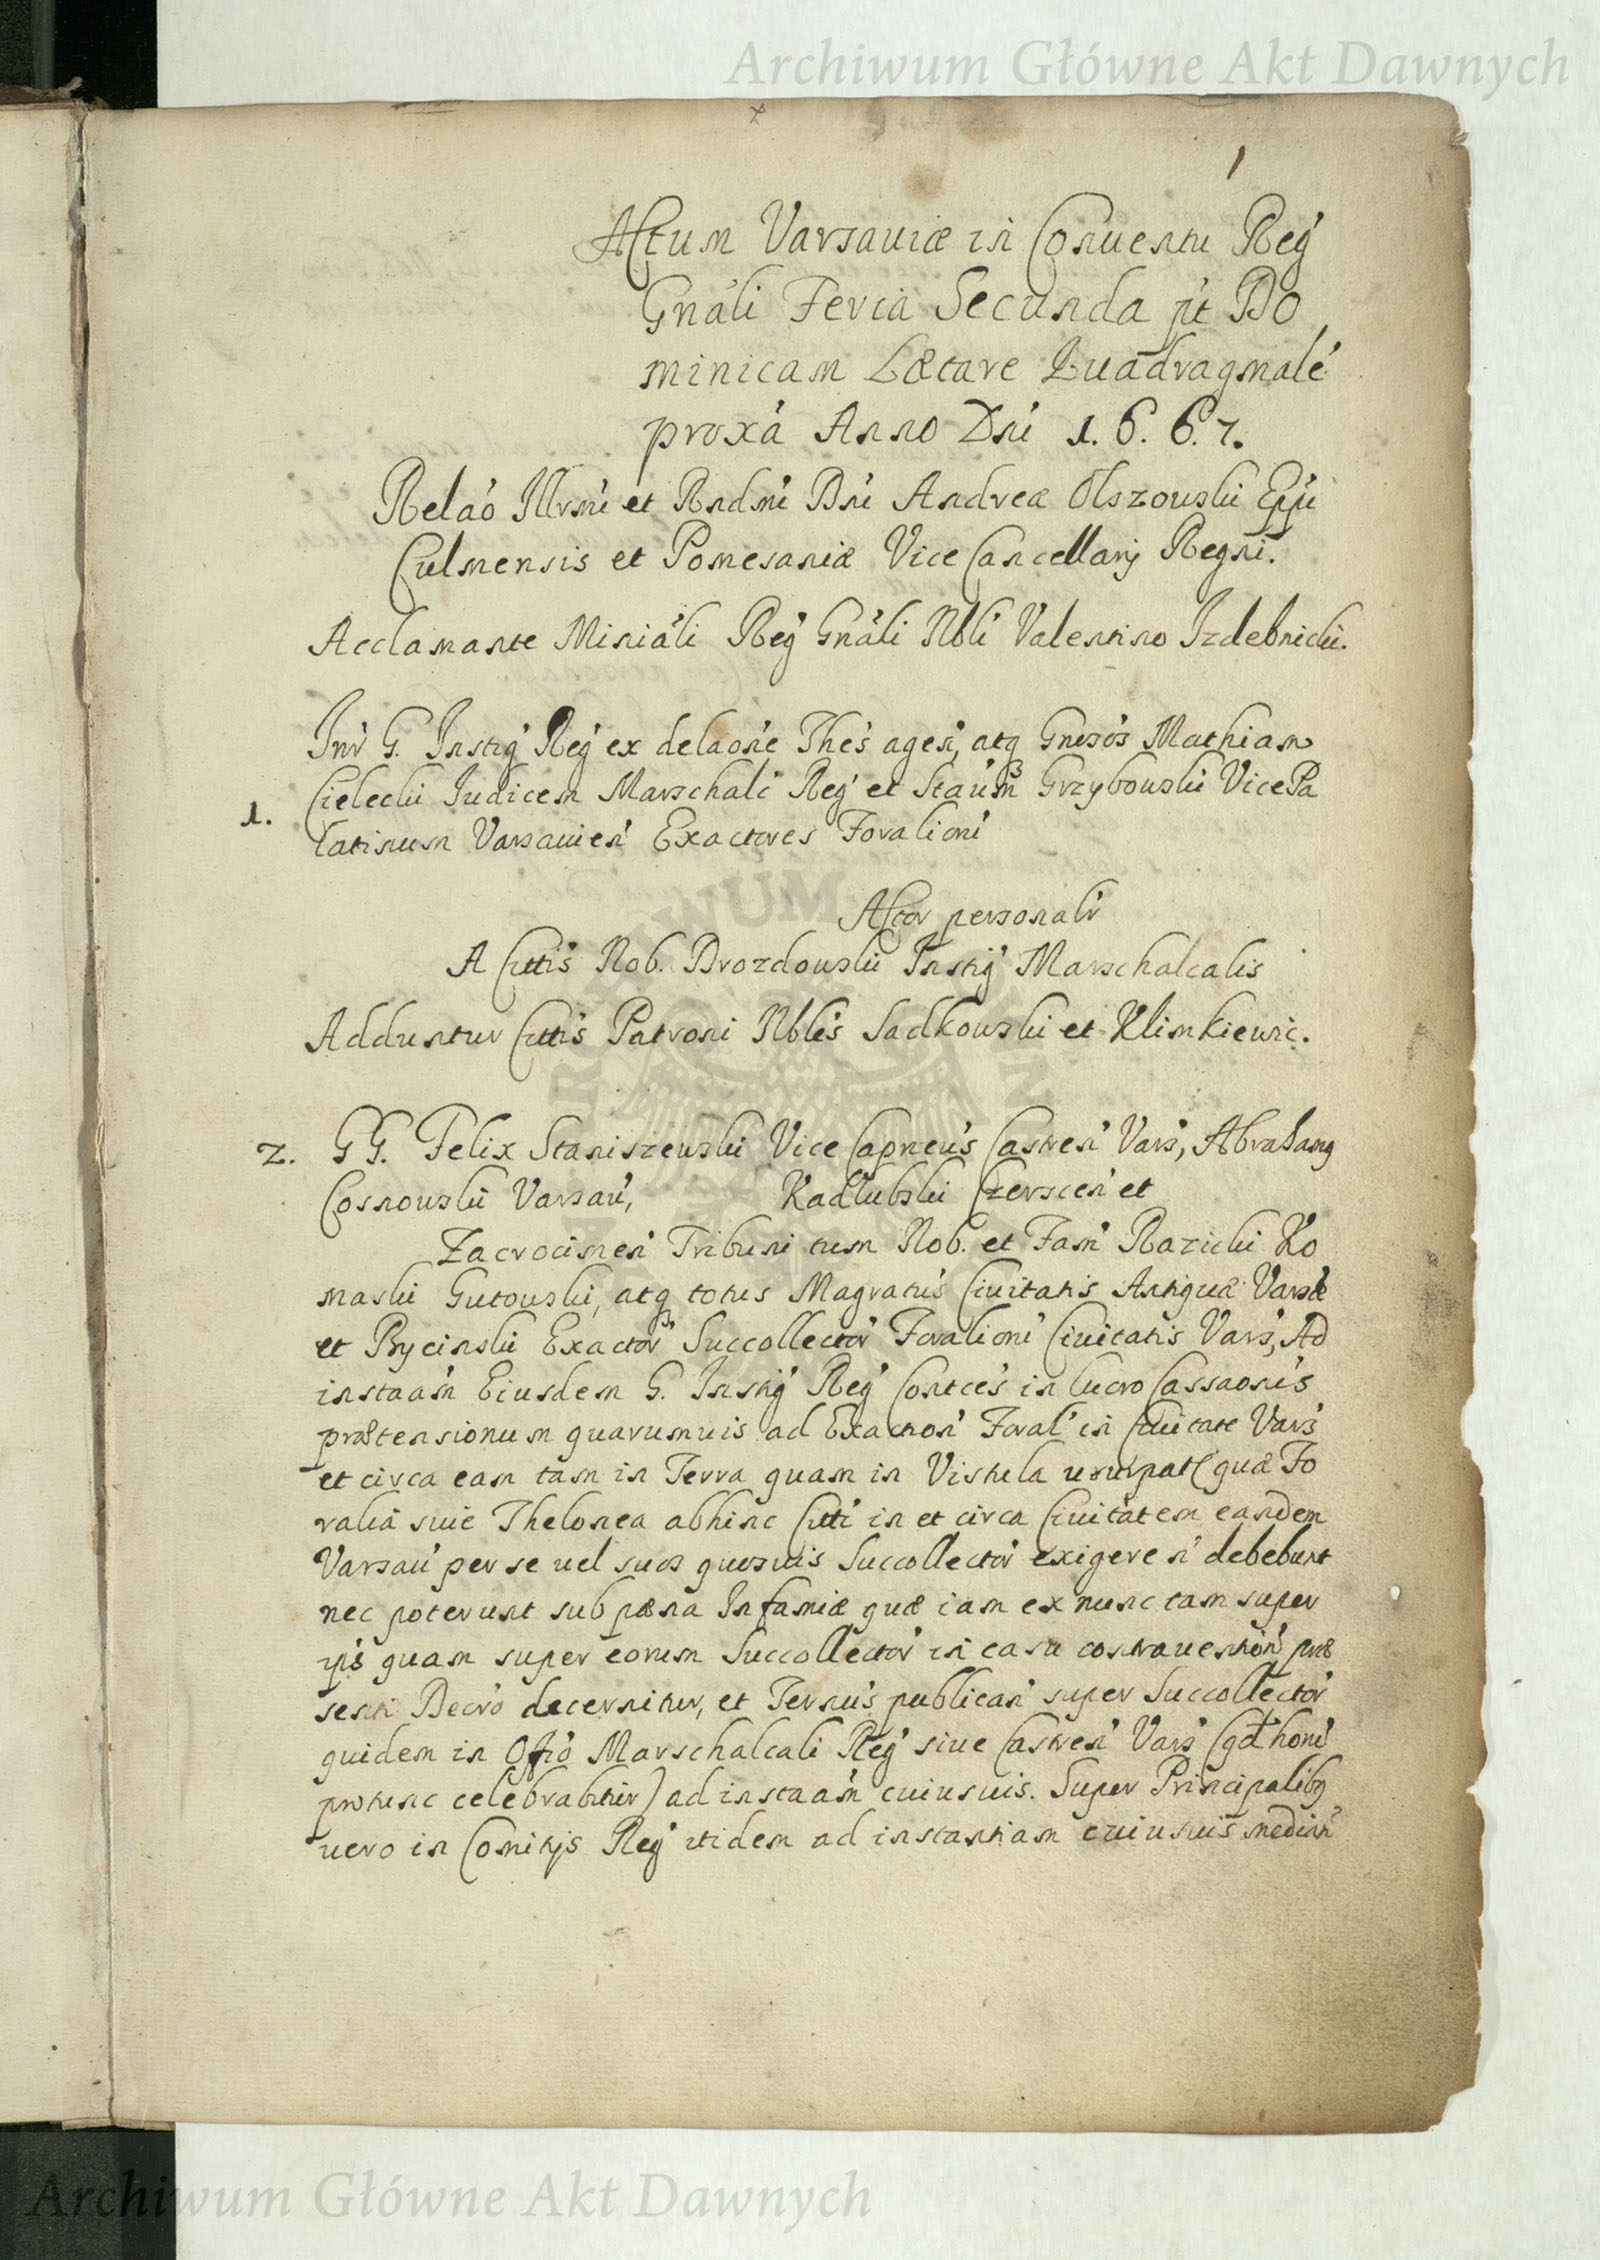 Archiwum Główne Akt Dawnych
1
Actum Varsauiæ in Conuentu Reg
Gnáli Feria Secunda pt Do
minicam Lætare Quadragmalé
proxá Anno Dní 1.6.6.7.
Relaó Illrmí et Rndmí Dní Andreæ Olszouski Eppi
Culmensis et Pomesaniæ Vice Cancellarij Regni.
Acclamante Miniáli Reg Gnáli Nbli Valentino Izdebnicki.
Inr G. Instig Reg ex delaoné Thes agen, atq Gnrosos Mathiam
1. Cielecki Iudicem Marschalc Reg et Staum Grzybouski Vice Pa
latinum Varsauien Exactores Foralioni
Actor personalr
A Cittis Nob. Drozdouski Instig Marschalcalis
Adduntur Cittis Patroni Nbles Sadkouski et Klimkiewic.
2. GG. Felix Staniszeuski Vice Capneus Castren Vars, Abrahamq
Cosnouski Varsau, Kadlubski Czerscen et
Zacrocimen Tribuni tum Nob. et Fam Razicki Ko
maski Gutouski, atq totus Magratus Ciuitatis Antiquæ Varsæ
et Rycinski Exactor Succollector Foralioni Ciuitatis Vars, Ad
instaám Eiusdem G. Instig Reg Contces in lucro Cassaonis
prætensionum quarumuis ad Exaction Foral in Ciuitate Vars
et circa eam tam in Terra quam in Vistula usurpat( quæ Fo
ralia siue Thelonea abhinc Citti in et circa Ciuitatem eandem
Varsau per se uel suos quosuis Succollector exigere n debebunt
nec poterunt sub pæna Infamiæ quæ iam ex nunc tam super
ips quam super eorum Succollector in casu contrauention præ
senti Decro decernitur, et Ternus publican super Succollector
quidem in Offio Marschalcali Reg siue Castren Vars (qd honi
protunc celebrabitur) ad instaám cuiusuis. Super Principalibq
uero in Comitijs Reg itidem ad instantiam cuiusuis median
Archiwum Główne Akt Dawnych